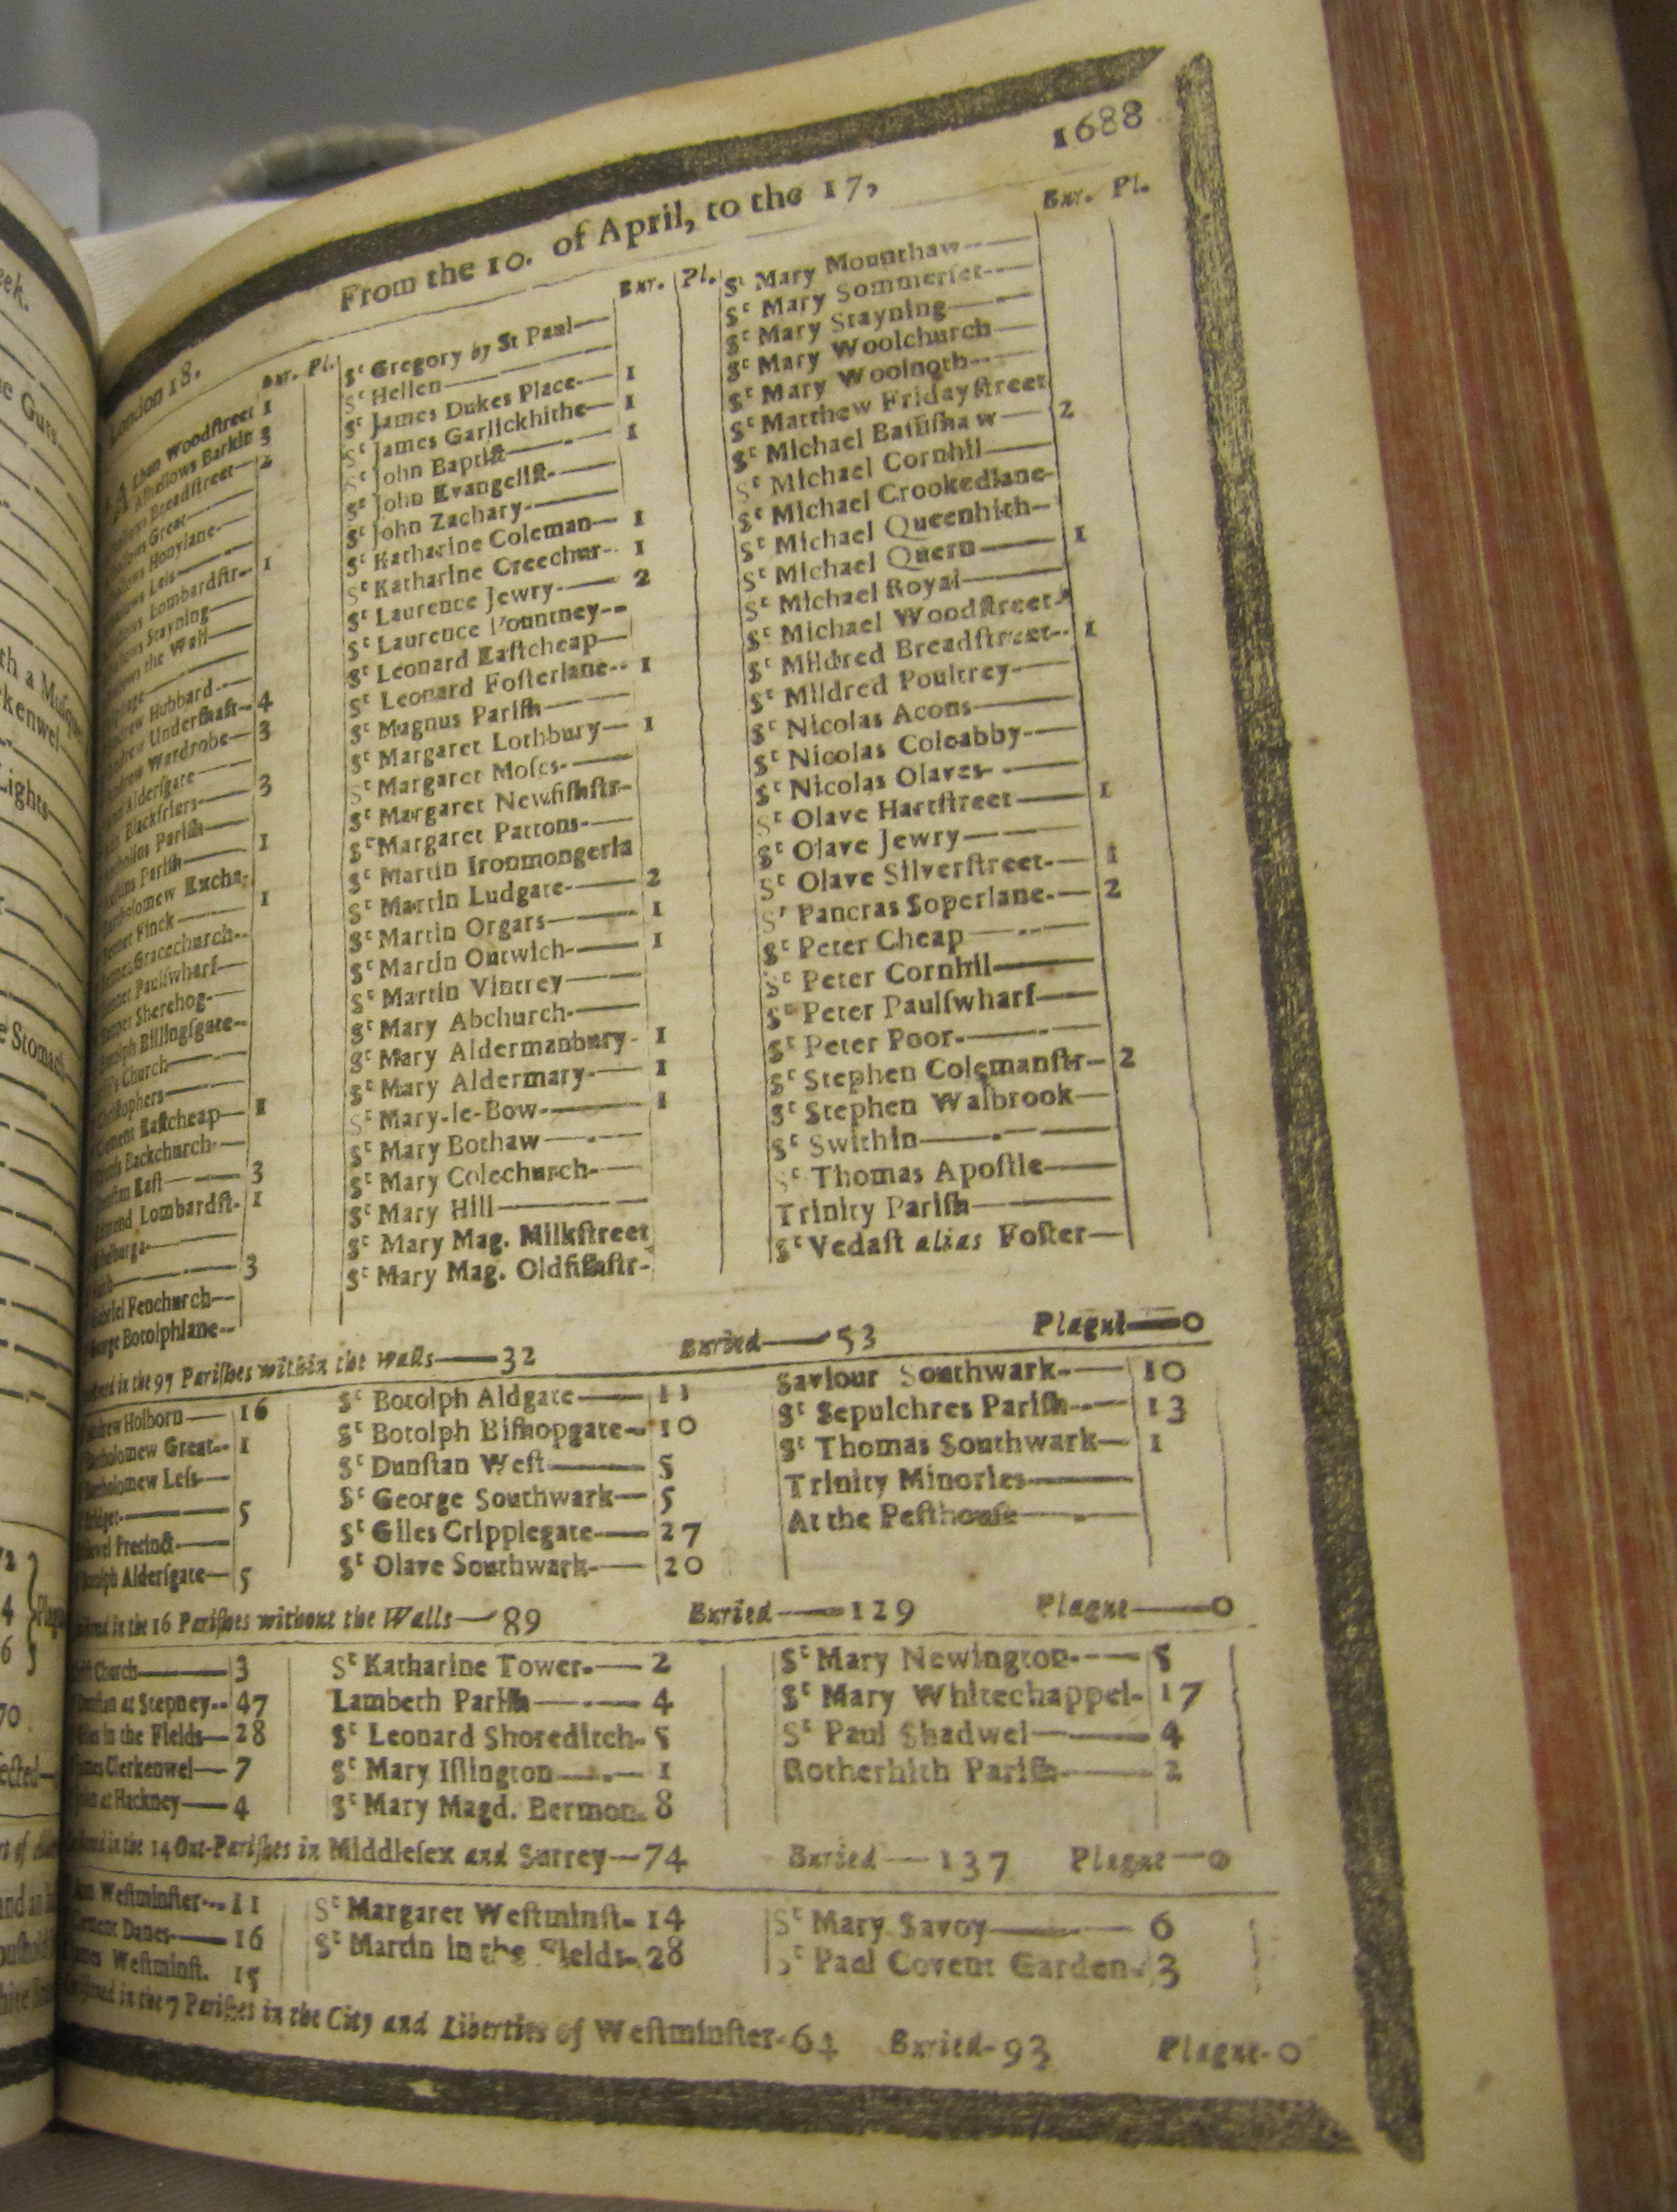 London 18. From the 10. of April, to the 17, 1688
Bur. Pl.
ALban Woodstreet 1
Alhallows Barkin 3
Breadstreet— 2
Great—
Honylane—
Less—
Lombardstr— 1
Stayning—
the Wall—
Hubbard—
Undershaft— 4
Wardrobe— 3
Aldersgate—
Blackfriers— 3
Parish—
Parish— 1
Excha.
Finck— 1
Gracechurch—
Paulswharf—
Sherehog—
Billingsgate—
Church—
Eastcheap— 1
Backchurch—
East— 3
Lombardst— 1
— 3
Fenchurch—
Botolphlane—
Bur. Pl.
Sᵗ Gregory by St Paul—
Sᵗ Hellen—
Sᵗ James Dukes Place— 1
Sᵗ James Garlickhithe— 1
Sᵗ John Baptist— 1
Sᵗ John Evangelist—
Sᵗ John Zachary—
Sᵗ Katharine Coleman— 1
Sᵗ Katharine Creechur— 1
Sᵗ Laurence Jewry— 2
Sᵗ Laurence Pountney—
Sᵗ Leonard Eastcheap—
Sᵗ Leonard Fosterlane— 1
Sᵗ Magnus Parish—
Sᵗ Margaret Lothbury— 1
Sᵗ Margaret Moses—
Sᵗ Margaret Newfishstr—
Sᵗ Margaret Pattons—
Sᵗ Martin Ironmongerla
Sᵗ Martin Ludgate— 2
Sᵗ Martin Orgars— 1
Sᵗ Martin Outwich— 1
Sᵗ Martin Vintrey—
Sᵗ Mary Abchurch—
Sᵗ Mary Aldermanbury- 1
Sᵗ Mary Aldermary— 1
Sᵗ Mary-le-Bow— 1
Sᵗ Mary Bothaw—
Sᵗ Mary Colechurch—
Sᵗ Mary Hill—
Sᵗ Mary Mag. Milkstreet
Sᵗ Mary Mag. Oldfishstr-
Bur. Pl.
Sᵗ Mary Mounthaw—
Sᵗ Mary Sommerset—
Sᵗ Mary Stayning—
Sᵗ Mary Woolchurch—
Sᵗ Mary Woolnoth—
Sᵗ Matthew Fridaystreet
Sᵗ Michael Bassishaw— 2
Sᵗ Michael Cornhil—
Sᵗ Michael Crookedlane-
Sᵗ Michael Queenhith—
Sᵗ Michael Quern— 1
Sᵗ Michael Royal—
Sᵗ Michael Woodstreet
Sᵗ Mildred Breadstreet— 1
Sᵗ Mildred Poultrey—
Sᵗ Nicolas Acons—
Sᵗ Nicolas Coleabby—
Sᵗ Nicolas Olaves—
Sᵗ Olave Hartstreet— 1
Sᵗ Olave Jewry—
Sᵗ Olave Silverstreet— 1
Sᵗ Pancras Soperlane— 2
Sᵗ Peter Cheap—
Sᵗ Peter Cornhil—
Sᵗ Peter Paulswharf—
Sᵗ Peter Poor—
Sᵗ Stephen Colemanstr— 2
Sᵗ Stephen Walbrook—
Sᵗ Swithin—
Sᵗ Thomas Apostle—
Trinity Parish—
Sᵗ Vedast alias Foster—
in the 97 Parishes within the Walls— 32 Buried— 53 Plague— 0
Holborn— 16
Great— 1
Less—
— 5
Precinct—
Aldersgate— 5
Sᵗ Botolph Aldgate— 11
Sᵗ Botolph Bishopgate— 10
Sᵗ Dunstan West— 5
Sᵗ George Southwark— 5
Sᵗ Giles Cripplegate— 27
Sᵗ Olave Southwark— 20
Saviour Southwark— 10
Sᵗ Sepulchres Parish— 13
Sᵗ Thomas Southwark— 1
Trinity Minories—
At the Pesthouse—
in the 16 Parishes without the Walls— 89 Buried— 129 Plague— 0
Church— 3
at Stepney— 47
in the Fields— 28
Clerkenwel— 7
at Hackney— 4
Sᵗ Katharine Tower— 2
Lambeth Parish— 4
Sᵗ Leonard Shoreditch- 5
Sᵗ Mary Islington— 1
Sᵗ Mary Magd. Bermon. 8
Sᵗ Mary Newington— 5
Sᵗ Mary Whitechappel- 17
Sᵗ Paul Shadwel— 4
Rotherhith Parish— 2
in the 14 Out-Parishes in Middlesex and Surrey— 74 Buried— 137 Plague— 0
Westminster— 11
Danes— 16
Westminst. 15
Sᵗ Margaret Westminst- 14
Sᵗ Martin in the Fields- 28
Sᵗ Mary Savoy— 6
Sᵗ Paul Covent Garden- 3
in the 7 Parishes in the City and Liberties of Westminster- 64 Buried- 93 Plague- 0